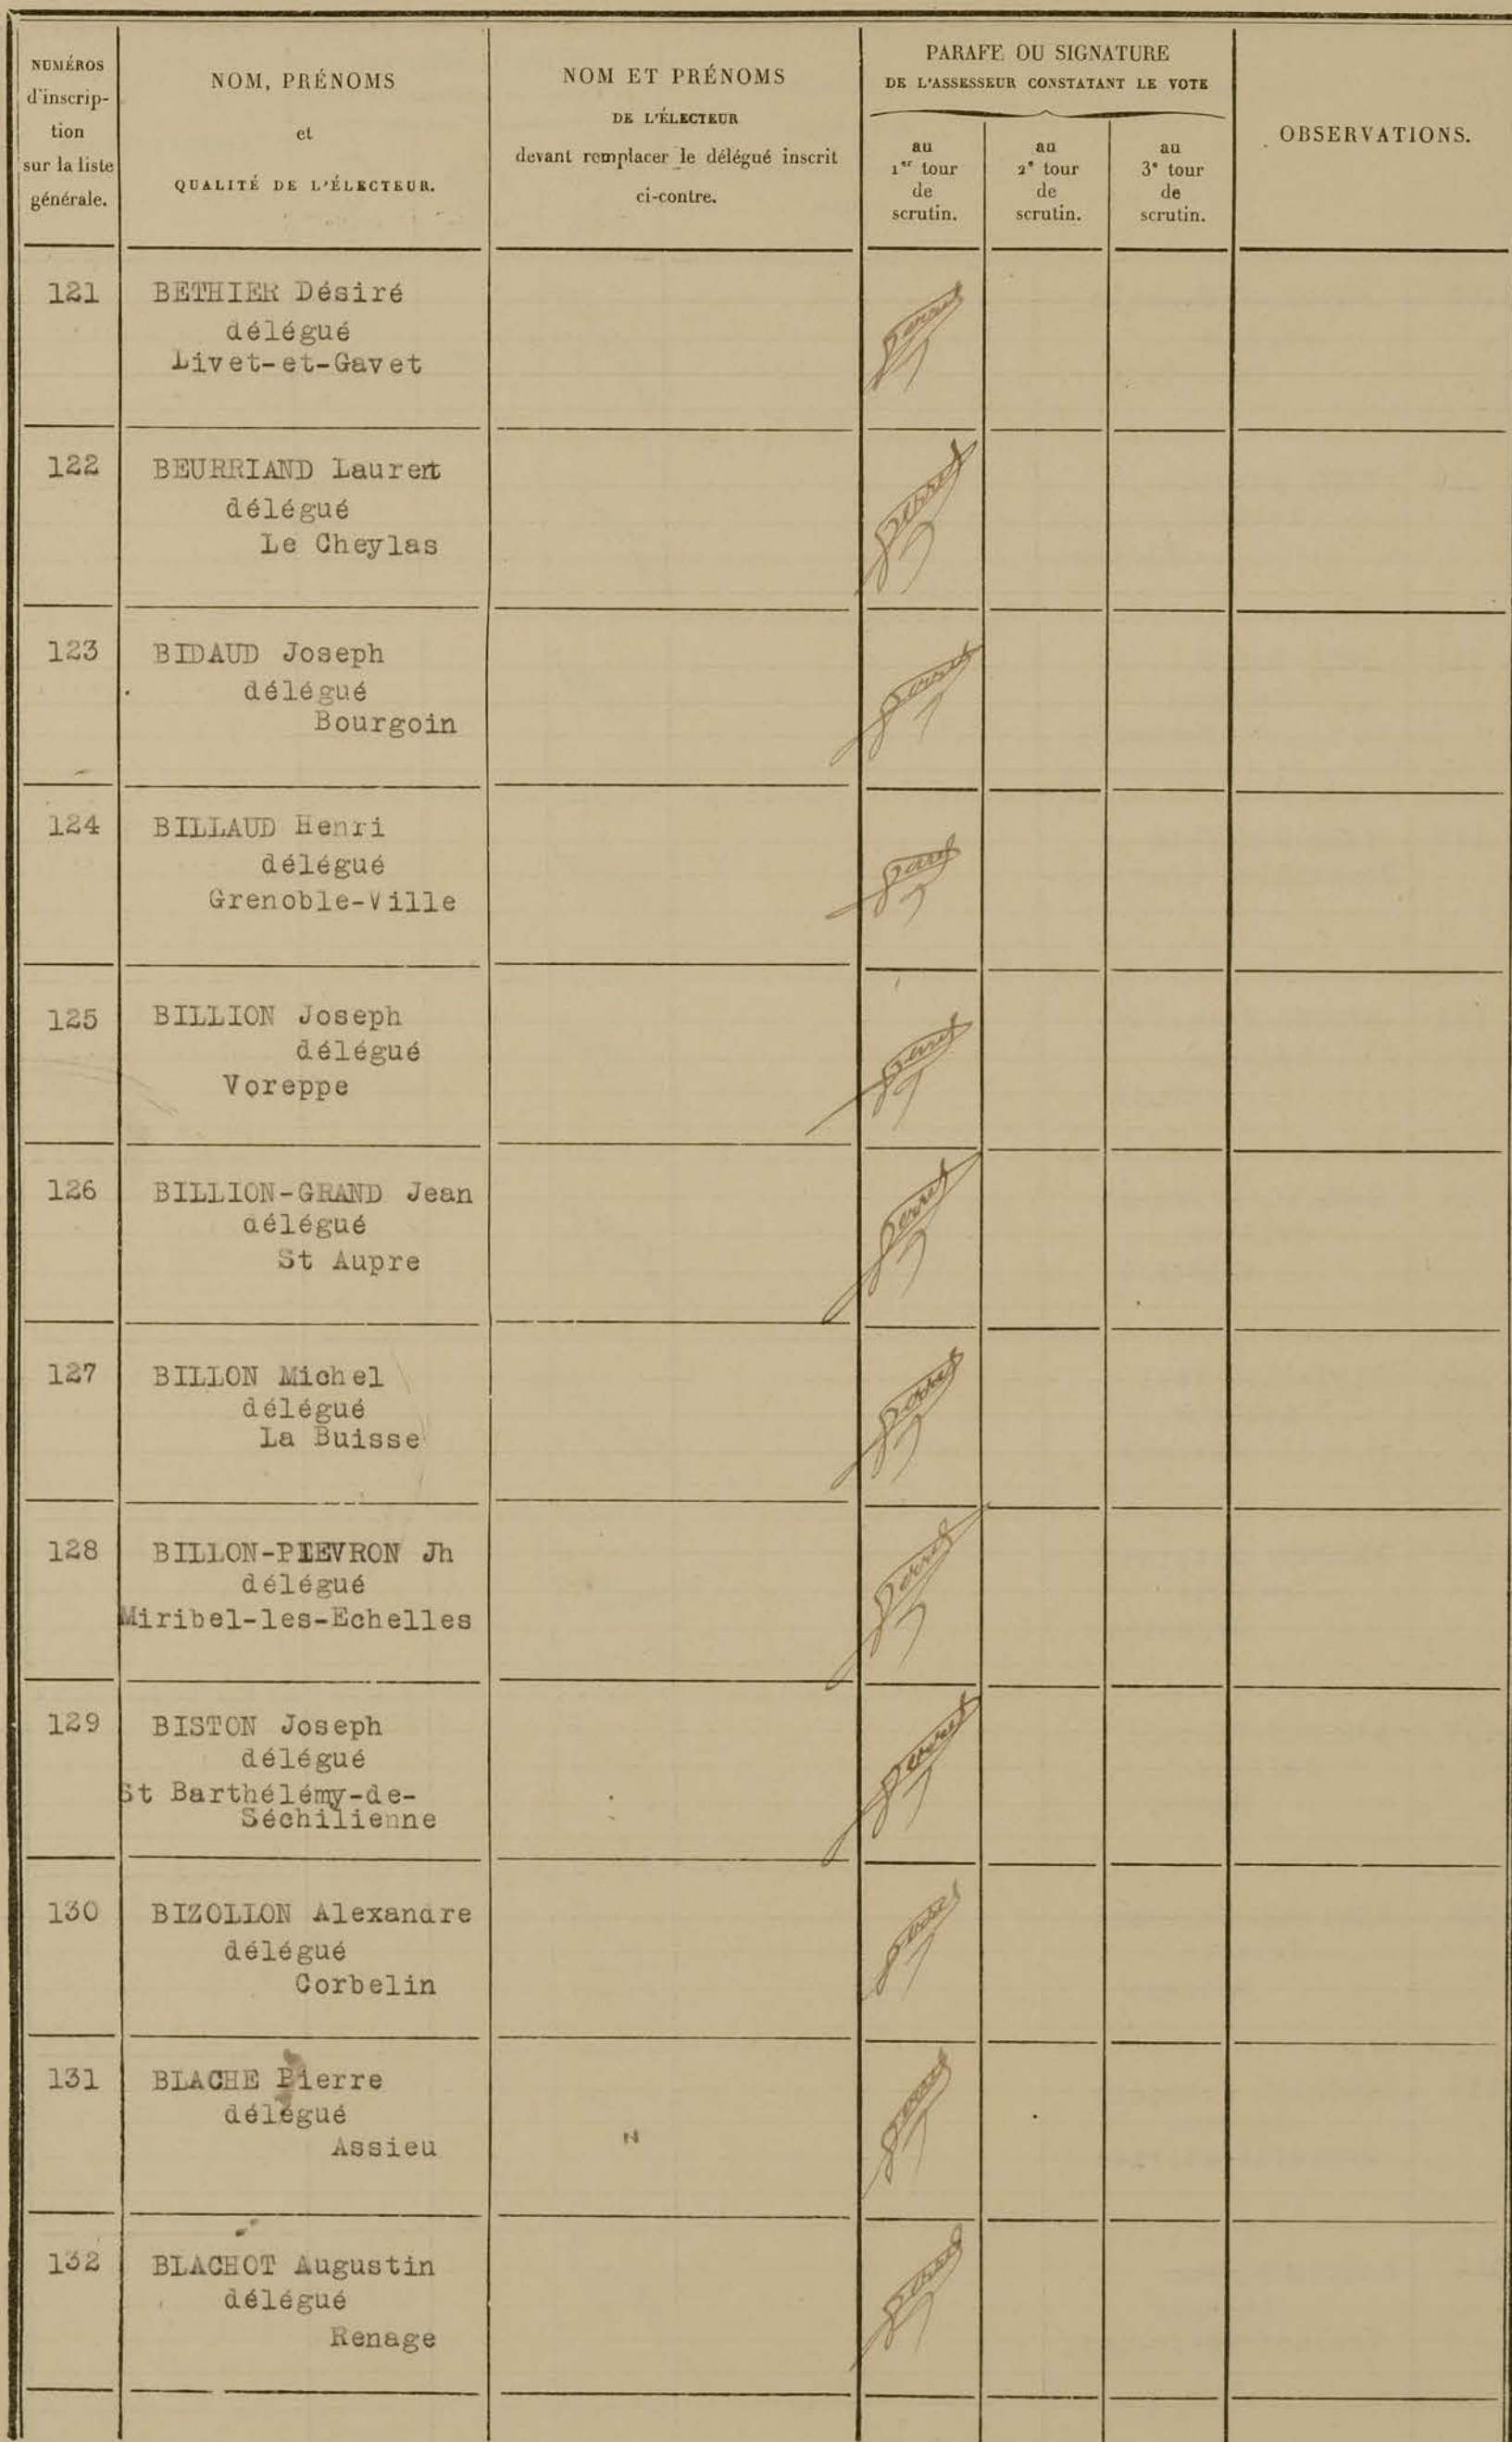 NUMÉROS
d'inscrip-
tion
sur la liste
générale.
NOM, PRÉNOMS
et
QUALITÉ DE L'ÉLECTEUR.
NOM ET PRÉNOMS
DE L'ÉLECTEUR
devant remplacer le délégué inscrit
ci-contre.
PARAFE OU SIGNATURE
DE L'ASSESSEUR CONSTATANT LE VOTE
au
1er tour
de
scrutin.
au
2e tour
de
scrutin.
au
3e tour
de
scrutin.
OBSERVATIONS.
121 BETHIER Désiré
délégué
Livet-et-Gavet
122 BEURRIAND Laurent
délégué
Le Cheylas
123 BIDAUD Joseph
délégué
Bourgoin
124 BILLAUD Henri
délégué
Grenoble-Ville
125 BILLION Joseph
délégué
Voreppe
126 BILLION-GRAND Jean
délégué
St Aupre
127 BILLON Michel
délégué
La Buisse
128 BILLON-PIEVRON Jh
délégué
Miribel-les-Echelles
129 BISTON Joseph
délégué
St Barthélémy-de-
Séchilienne
130 BIZOLLON Alexandre
délégué
Corbelin
131 BLACHE Pierre
délégué
Assieu
132 BLACHOT Augustin
délégué
Renage